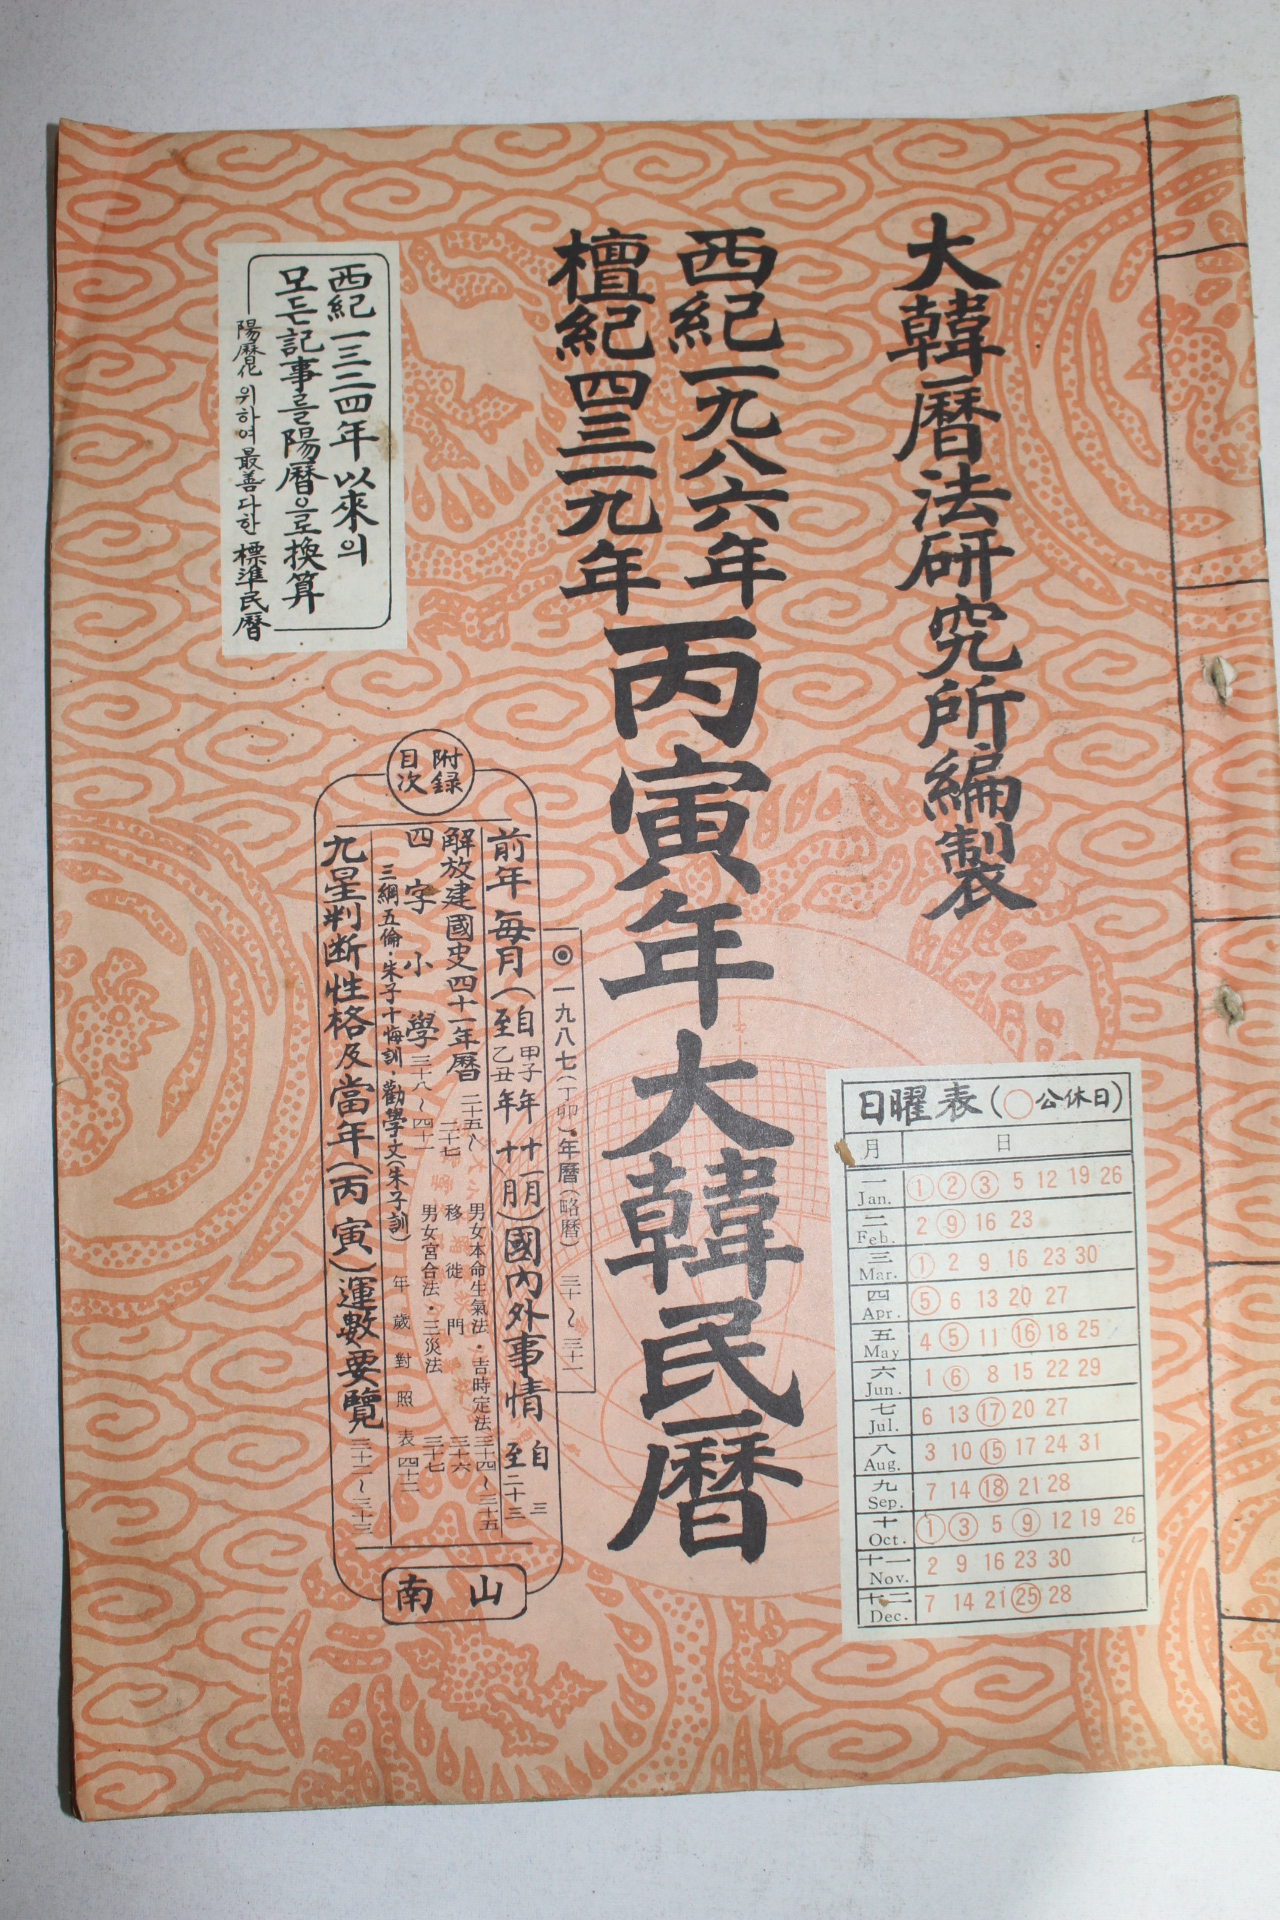 大韓曆法研究所編製
西紀一九八六年
檀紀四三一九年
丙寅年大韓民曆
西紀一三二四年以來의
모든記事를陽曆으로換算
陽曆化 위하여 最善 다한 標準民曆
附録
目次
◉一九八七(丁卯)年曆(略曆) 三十~三十一
前年 每月(自甲子年十一月 至乙丑年十月)國內外事情 自三 至二十三
解放建國史四十一年曆 二十五~二十七
男女本命生氣法・吉時定法 三十四~三十五
移徙門 三十六
四字小學 三十八~四十一
男女宮合法・三災法 三十七
三綱五倫・朱子十悔訓・勸學文(朱子訓)
年歲對照表 四十二
九星判断性格及當年(丙寅)運數要覽 三十二~三十三
南山
日曜表(○公休日)
月 日
一 Jan. ① ② ③ 5 12 19 26
二 Feb. 2 ⑨ 16 23
三 Mar. ① 2 9 16 23 30
四 Apr. ⑤ 6 13 20 27
五 May 4 ⑤ 11 ⑯ 18 25
六 Jun. 1 ⑥ 8 15 22 29
七 Jul. 6 13 ⑰ 20 27
八 Aug. 3 10 ⑮ 17 24 31
九 Sep. 7 14 ⑱ 21 28
十 Oct. ① ③ 5 ⑨ 12 19 26
十一 Nov. 2 9 16 23 30
十二 Dec. 7 14 21 ㉕ 28